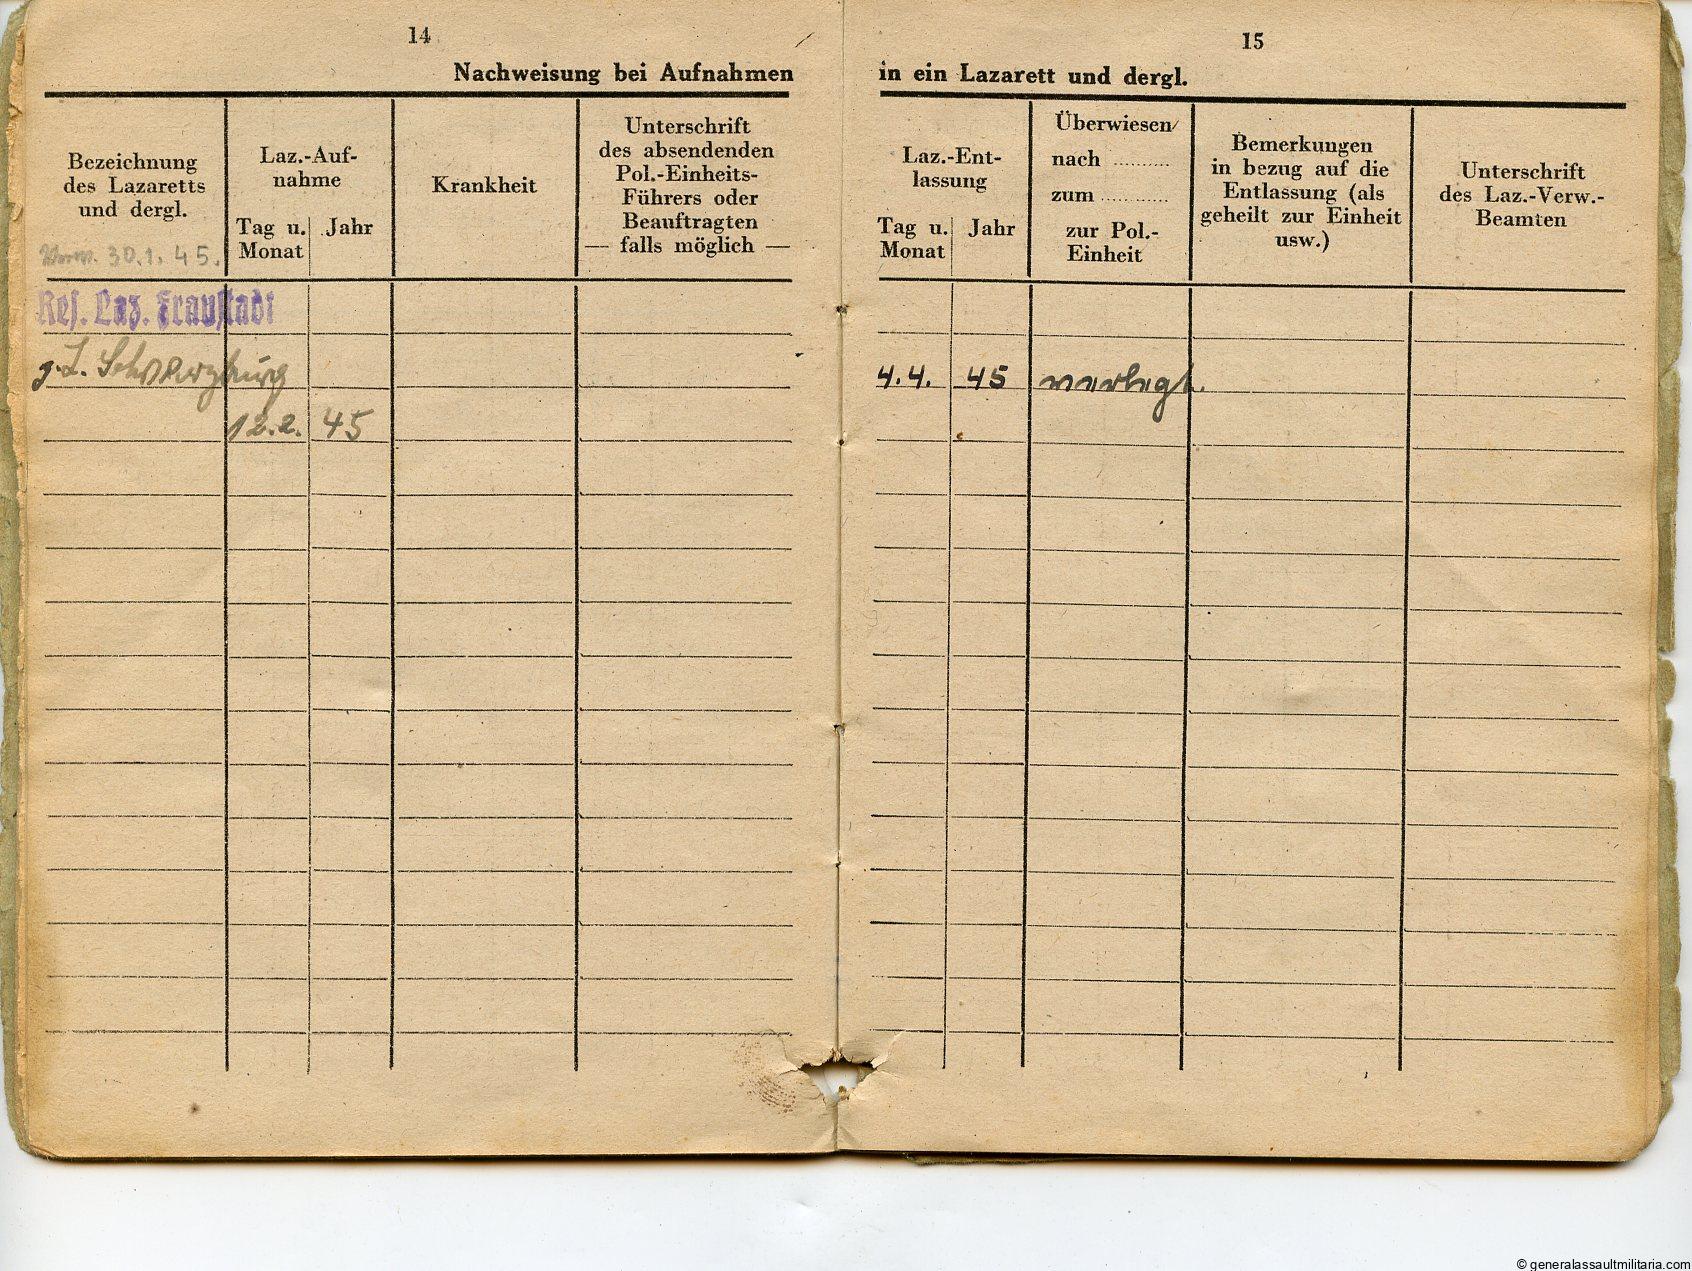 14
Nachweisung bei Aufnahmen
Bezeichnung
des Lazaretts
und dergl.
Laz.-Auf-
nahme
Tag u.
Monat
Jahr
Krankheit
Unterschrift
des absendenden
Pol.-Einheits-
Führers oder
Beauftragten
— falls möglich —
30.1.45.
Res. Laz. Fraustadt
Schwarzburg
12.2. 45
15
in ein Lazarett und dergl.
Laz.-Ent-
lassung
Tag u.
Monat
Jahr
Überwiesen
nach ..........
zum ............
zur Pol.-
Einheit
Bemerkungen
in bezug auf die
Entlassung (als
geheilt zur Einheit
usw.)
Unterschrift
des Laz.-Verw.-
Beamten
4.4. 45 verlegt.
© generalassaultmilitaria.com